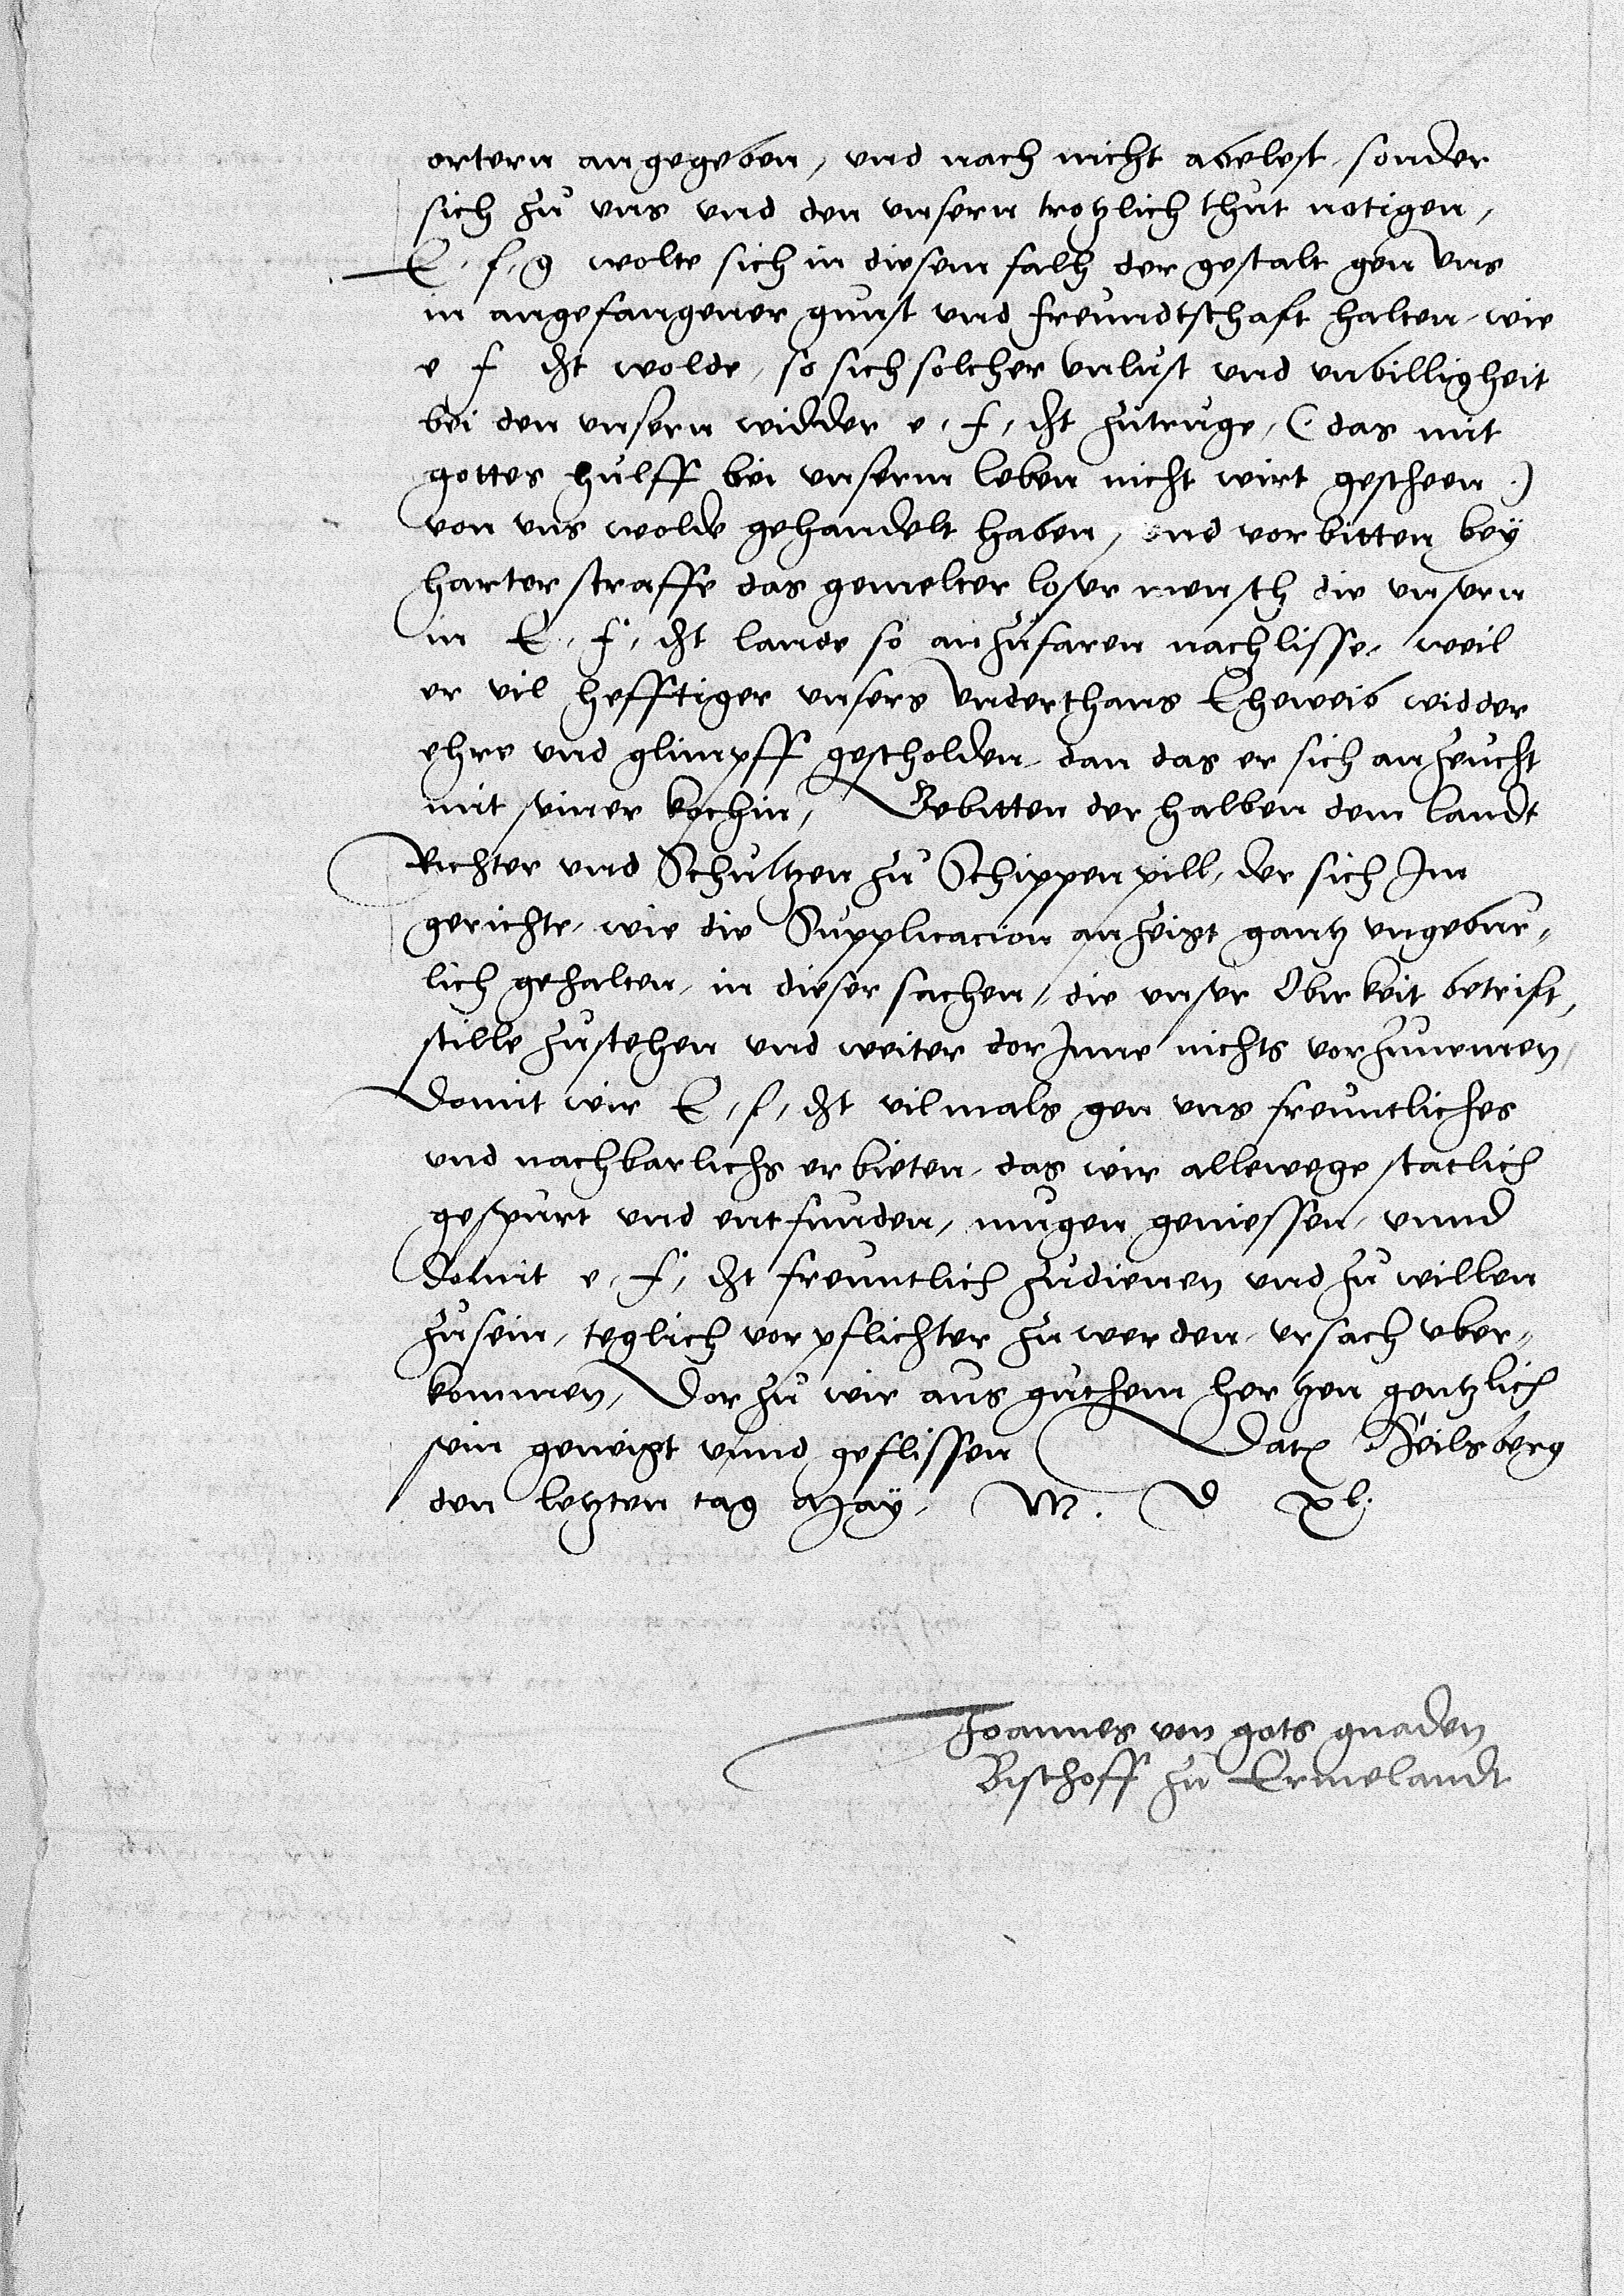 ortern angegeben, und nach nicht abelest, sonder
sich zu uns und den unsern trotzlich thut notigen,
E, f, g wolte sich in diesem falh der gestalt gen uns
in angefangener gunst und freundtschaft halten, wie
e f dt wolde, so sich solcher unlust und unbilligheit
bei den unsern widder e, f, dt zutruge, (das mit
gottes hulff bei unserm leben nicht wirt gescheen)
von uns wolde gehandelt haben, und vorbitten bey
harter straffe das gemelter loser mensch die unsern
in E, f, dt lande so anzufaren nachlisse, weil
er vil hefftiger unsers underthans Eheweib widder
ehre und glimpff gescholden, dan das er sich anzeucht
mit seiner kochin, Bebitten der halben dem landt
Richter und Schultzen zu Schippenpill, der sich Im
gerichte, wie die Supplicacion anzeigt gantz ungebur,
lich gehalten, in dieser sachen, die unser Oberkeit betrift,
stille zustehen und weiter dorInne nichts vorzunemen,
Domit wir E, f, dt vilmals gen uns freuntliches
und nachbarlichs erbieten, das wir allewege statlich
gespurt und entfunden, mugen geniessen, unnd
Domit e, f, dt freuntlich zudienen und zu willen
zusein, teglich vorpflichter zu werden, ursach uber,
kommen, Dor zu wir aus guthem hertzen gentzlich
sein geneigt unnd geflissen Dat Heilsberg
den letzten tag May, M. D xl.
Joannes von gots gnaden
Bischoff zu Ermelandt